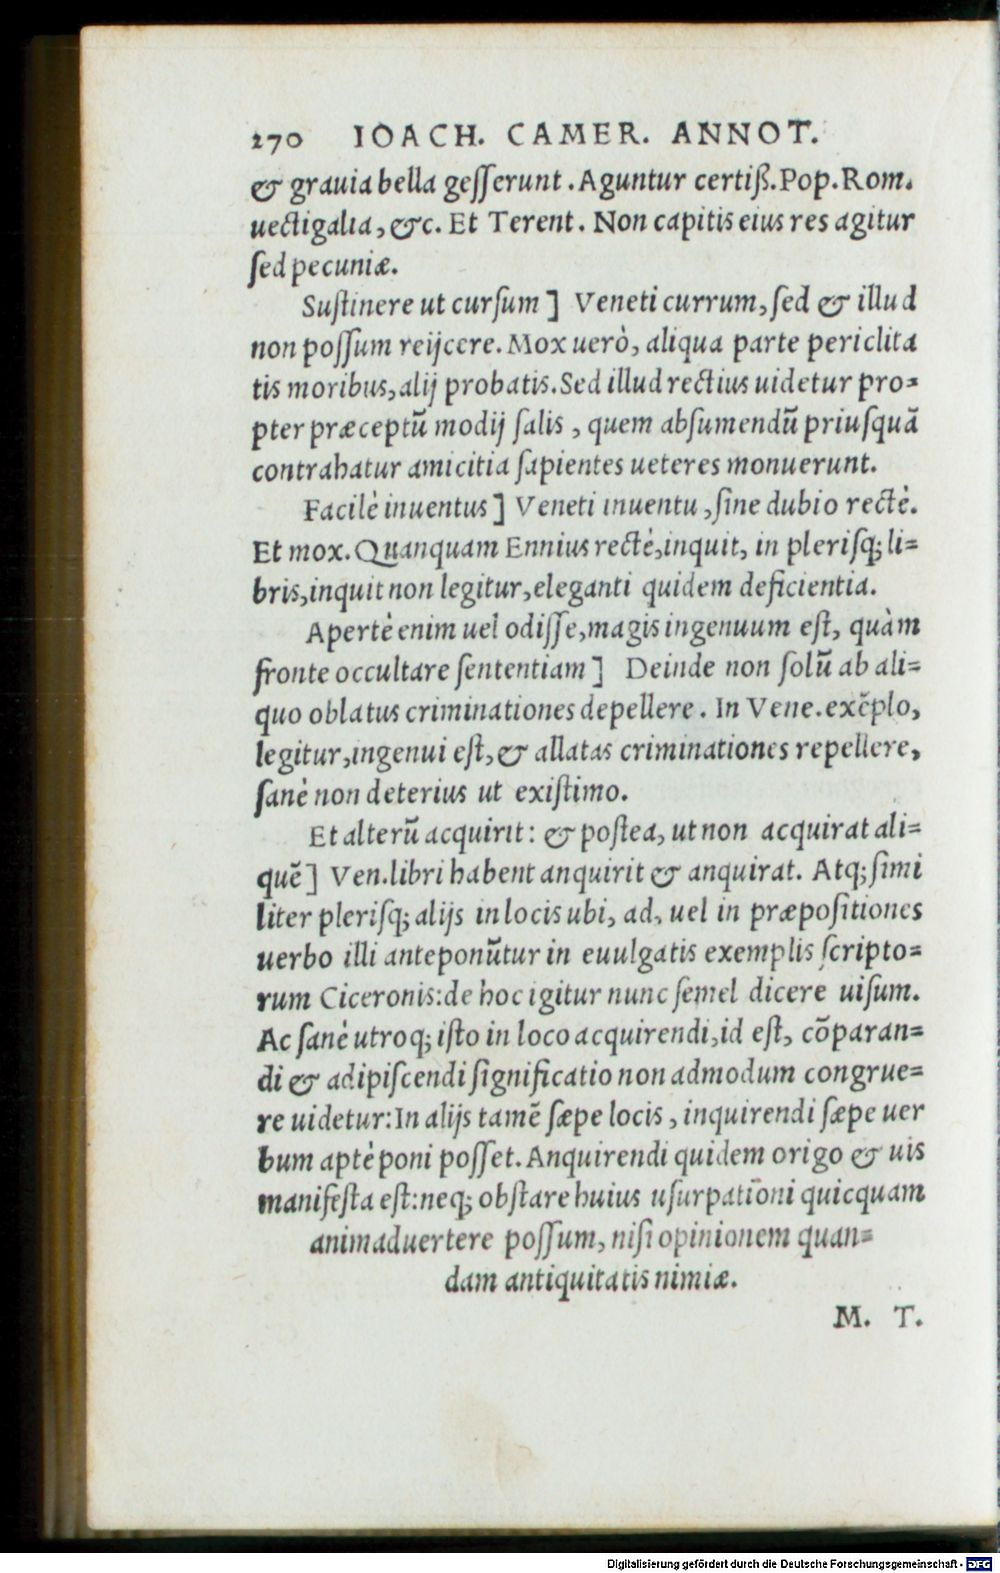 270 IOACH. CAMER. ANNOT.
& grauia bella geſſerunt. Aguntur certiß. Pop. Rom.
uectigalia, &c. Et Terent. Non capitis eius res agitur
ſed pecuniæ.
Suſtinere ut curſum] Veneti currum, ſed & illud
non poſſum reijcere. Mox uerò, aliqua parte periclita
tis moribus, alij probatis. Sed illud rectius uidetur pro=
pter præceptũ modij ſalis, quem abſumendũ priuſquã
contrahatur amicitia ſapientes ueteres monuerunt.
Facilè inuentus] Veneti inuentu, ſine dubio rectè.
Et mox. Quanquam Ennius rectè, inquit, in pleriſq; li=
bris, inquit non legitur, eleganti quidem deficientia.
Apertè enim uel odiſſe, magis ingenuum eſt, quàm
fronte occultare ſententiam] Deinde non ſolũ ab ali=
quo oblatus criminationes depellere. In Vene. exẽplo,
legitur, ingenui eſt, & allatas criminationes repellere,
ſanè non deterius ut exiſtimo.
Et alterũ acquirit: & poſtea, ut non acquirat ali=
quẽ] Ven. libri habent anquirit & anquirat. Atq; ſimi
liter pleriſq; alijs in locis ubi, ad, uel in præpoſitiones
uerbo illi anteponũtur in euulgatis exemplis ſcripto=
rum Ciceronis: de hoc igitur nunc ſemel dicere uiſum.
Ac ſanè utroq; iſto in loco acquirendi, id eſt, cõparan=
di & adipiſcendi ſignificatio non admodum congrue=
re uidetur: In alijs tamẽ ſæpe locis, inquirendi ſæpe uer
bum aptè poni poſſet. Anquirendi quidem origo & uis
manifeſta eſt: neq; obſtare huius uſurpationi quicquam
animaduertere poſſum, niſi opinionem quan=
dam antiquitatis nimiæ.
M. T.
Digitalisierung gefördert durch die Deutsche Forschungsgemeinschaft - DFG